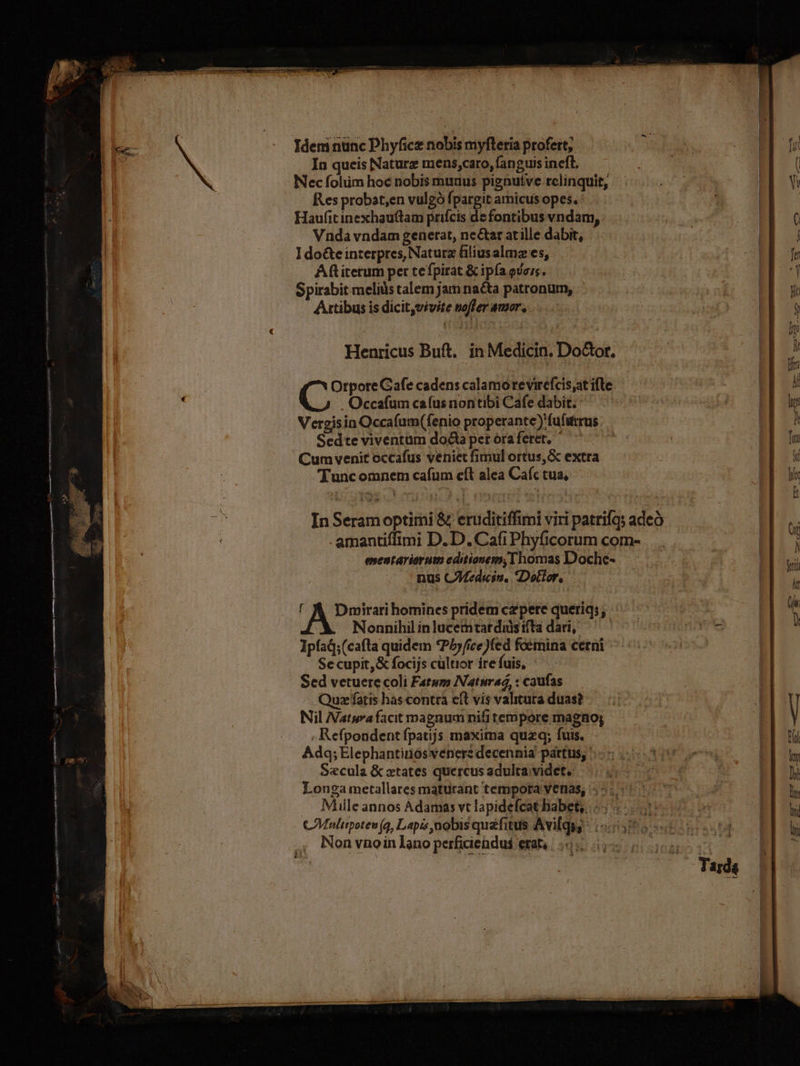 Idem nunc Phyſicæ nobis myſteria profert,
In queis Naturæ mens, caro, ſanguis ineſt.
Nec ſolùm hoc nobis munus pignuſve relinquit,
Res probat, en vulgò ſpargit amicus opes.
Hauſit inexhauſtam priſcis de fontibus vndam,
Vnda vndam generat, nectar at ille dabit,
I docte interpres, Naturæ filius almæ es,
Aſt iterum per te ſpirat & ipſa φύσις.
Spirabit meliùs talem jam nacta patronum,
Artibus is dicit, vivite noſter amor.
Henricus Buſt. in Medicin. Doctor.
COrpore Caſe cadens calamo revireſcis, at iſte
Occaſum caſus non tibi Caſe dabit.
Vergis in Occaſum (ſenio properante) ſuſurrus
Sed te viventùm docta per ora feret.
Cum venit occaſus veniet ſimul ortus, & extra
Tunc omnem caſum eſt alea Caſe tua,
In Seram optimi & eruditiſſimi viri patriſq; adeò
amantiſſimi D. D. Caſi Phyſicorum com-
mentariorum editionem, Thomas Doche-
nus Medicin. Doctor.
ADmirari homines pridem cæpere queriq;,
Nonnihil in lucem tardiùs iſta dari,
Ipſaq; (caſta quidem Phyſice) ſed fœmina cerni
Se cupit, & ſocijs cultior ire ſuis,
Sed vetuere coli Fatum Naturaq́, : cauſas
Quæ ſatis has contra eſt vis valitura duas?
Nil Natura facit magnum niſi tempore magno;
Reſpondent ſpatijs maxima quæq; ſuis.
Adq; Elephantinos venere decennia partus,
Sæcula & ætates quercus adulta videt.
Longa metallares maturant tempora venas,
Mille annos Adamas vt lapideſcat habet,
Multipotenſq, Lapis, nobis quæſitus Aviſq;,
Non vno in lano perficiendus erat,
Tarda